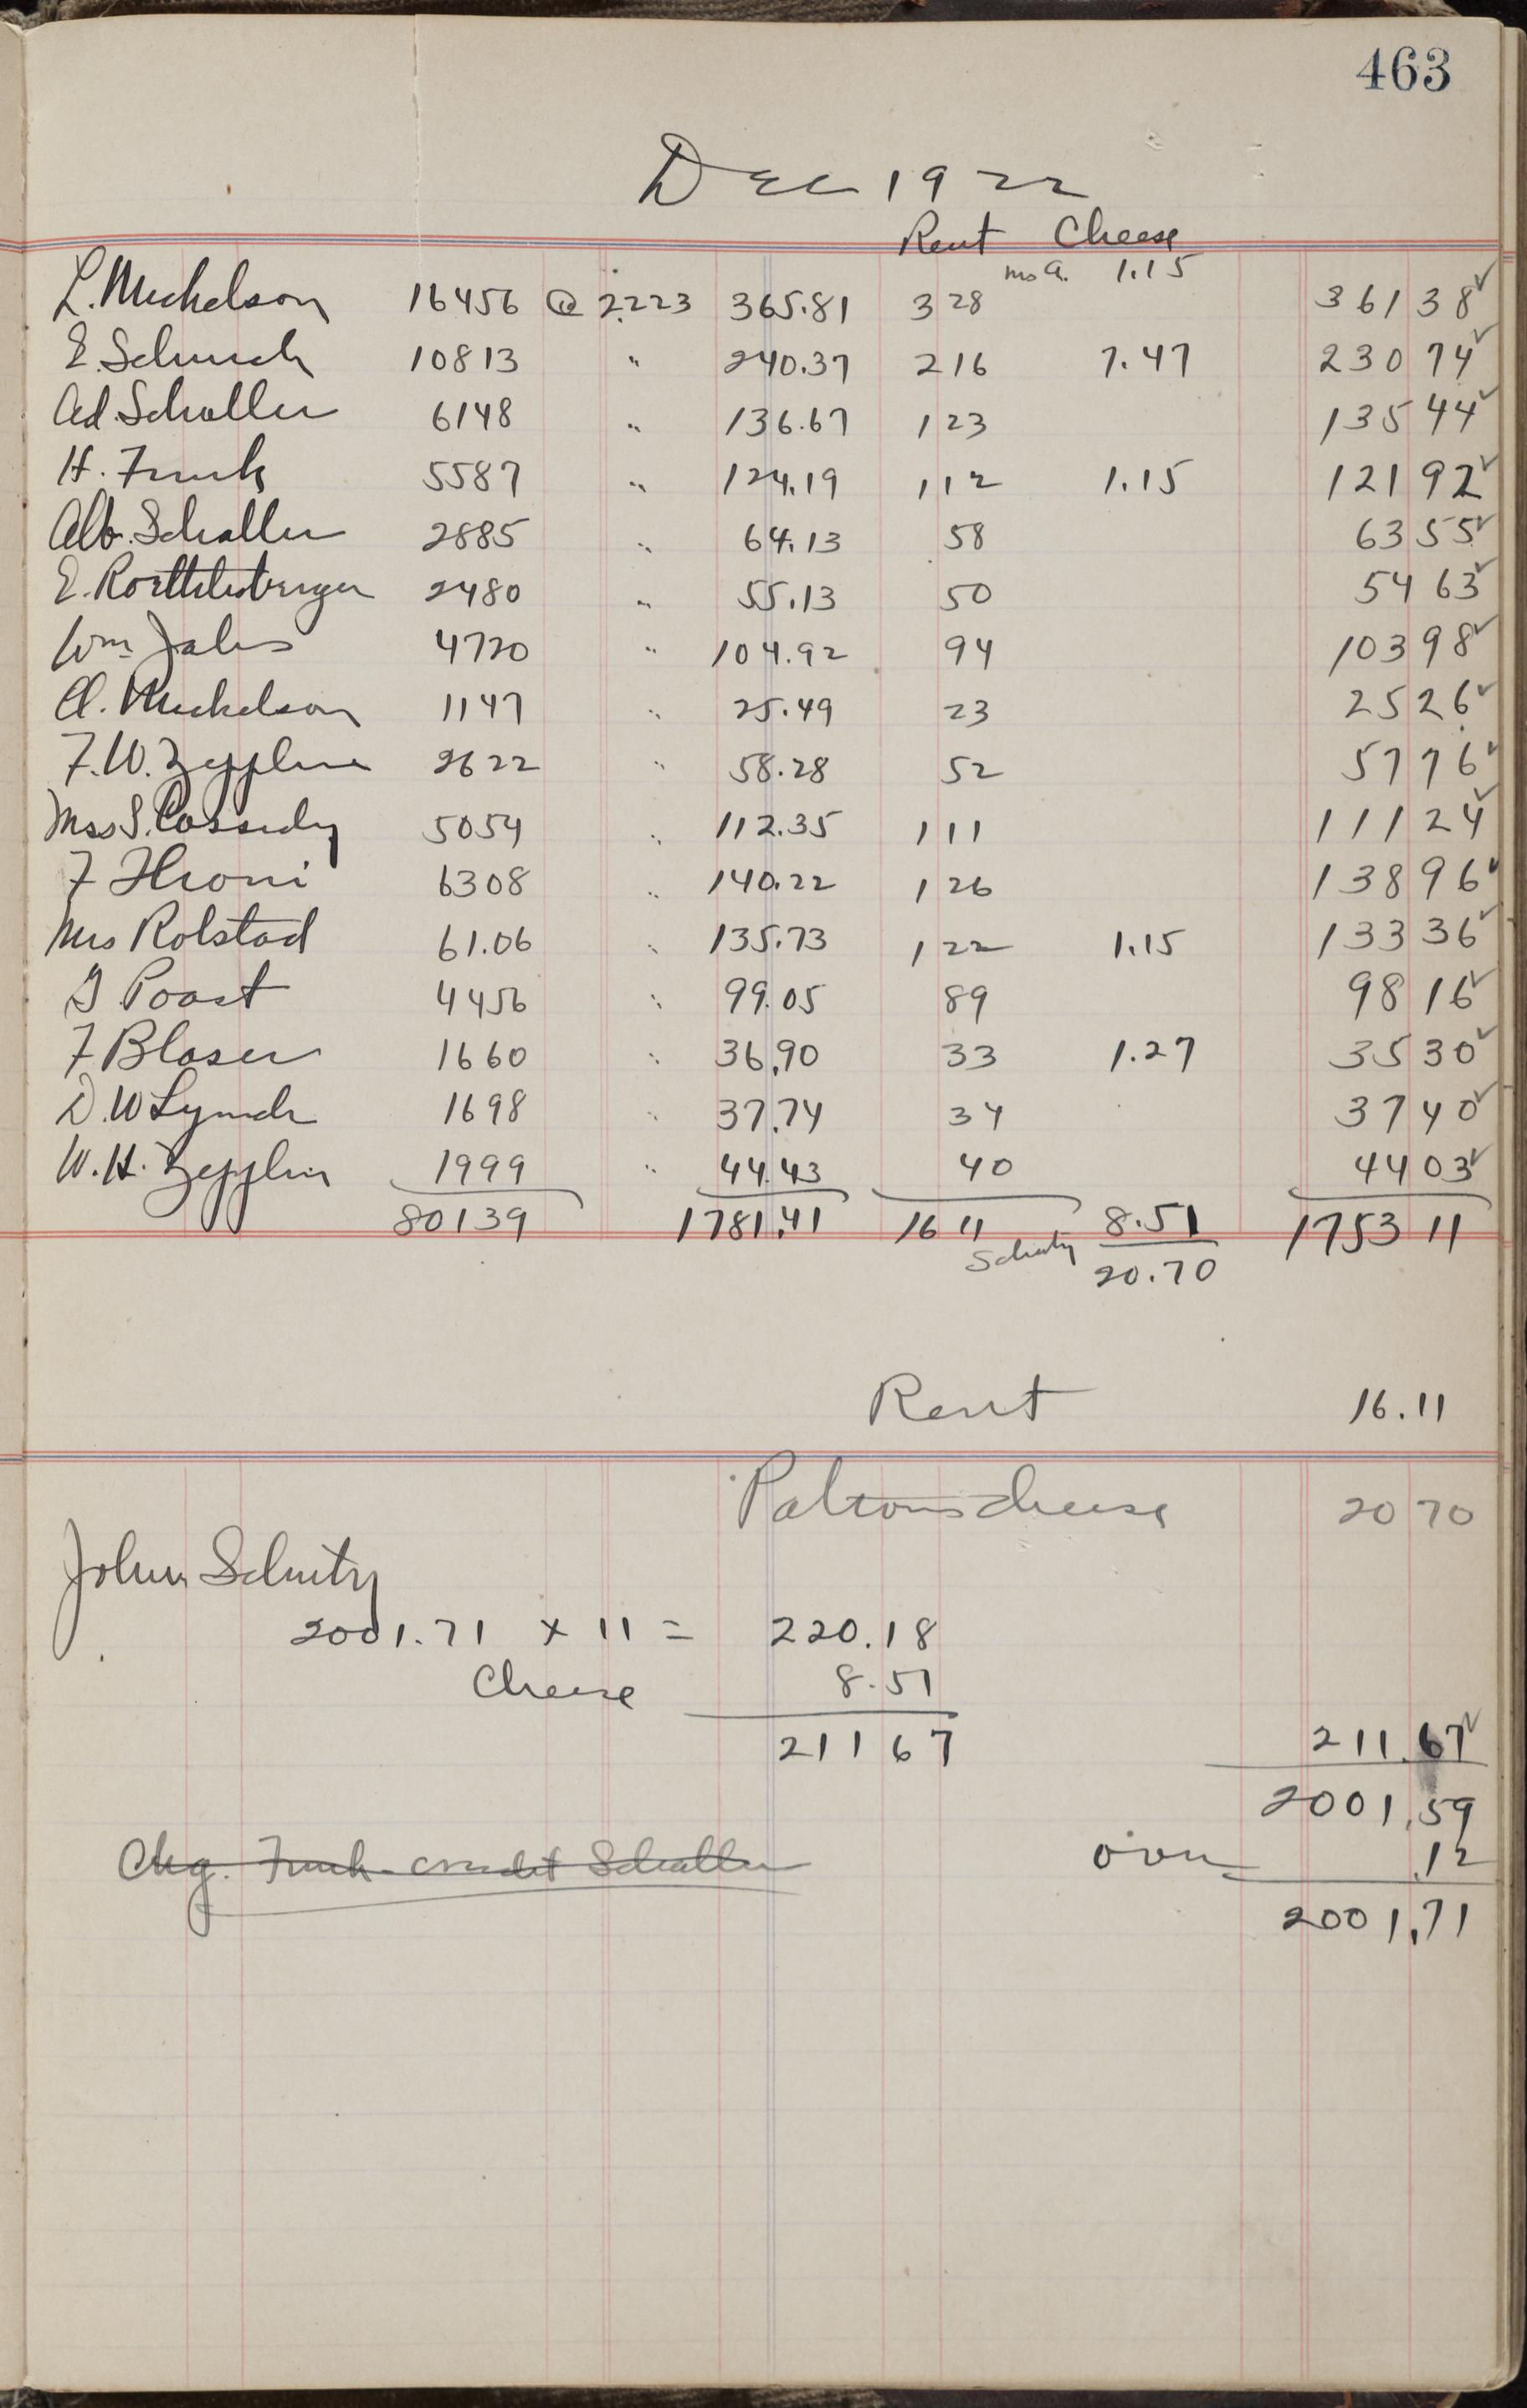 463
Dec 1922
Rent Cheese
L. Mickelson 16456 @ 2.223 365.81 3 28 ms a. 1.15 361 38 ✓
E. Schurch 10813 " 240.37 2 16 7.47 230 74 ✓
Ad. Schaller 6148 " 136.67 1 23 135 44 ✓
H. Funk 5587 " 124.19 1 12 1.15 121 92 ✓
Alb. Schaller 2885 " 64.13 58 63 55 ✓
E. Roethlisberger 2480 " 55.13 50 54 63 ✓
Wm Jales 4720 " 104.92 94 103 98 ✓
A. Mickelson 1147 " 25.49 23 25 26 ✓
F.W. Zepplin 2622 " 58.28 52 57 76 ✓
Mrs S. Cassidy 5054 " 112.35 1 11 111 24 ✓
F Hroni 6308 " 140.22 1 26 138 96 ✓
Mrs Rolstad 61.06 " 135.73 1 22 1.15 133 36 ✓
G Poast 4456 " 99.05 89 98 16 ✓
F Blaser 1660 " 36.90 33 1.27 35 30 ✓
D.W Lynch 1698 " 37.74 34 37 40 ✓
W.H. Zepplin 1999 " 44.43 40 44 03 ✓
80139 1781.41 16 11 8.51 1753 11
Schutz 20.70
Rent 16.11
Patrons cheese 20 70
John Schutz
2001.71 x 11 = 220.18
Cheese 8.51
211 67 211.67 ✓
2001.59
Chg. Funk credit Schaller over .12
2001.71